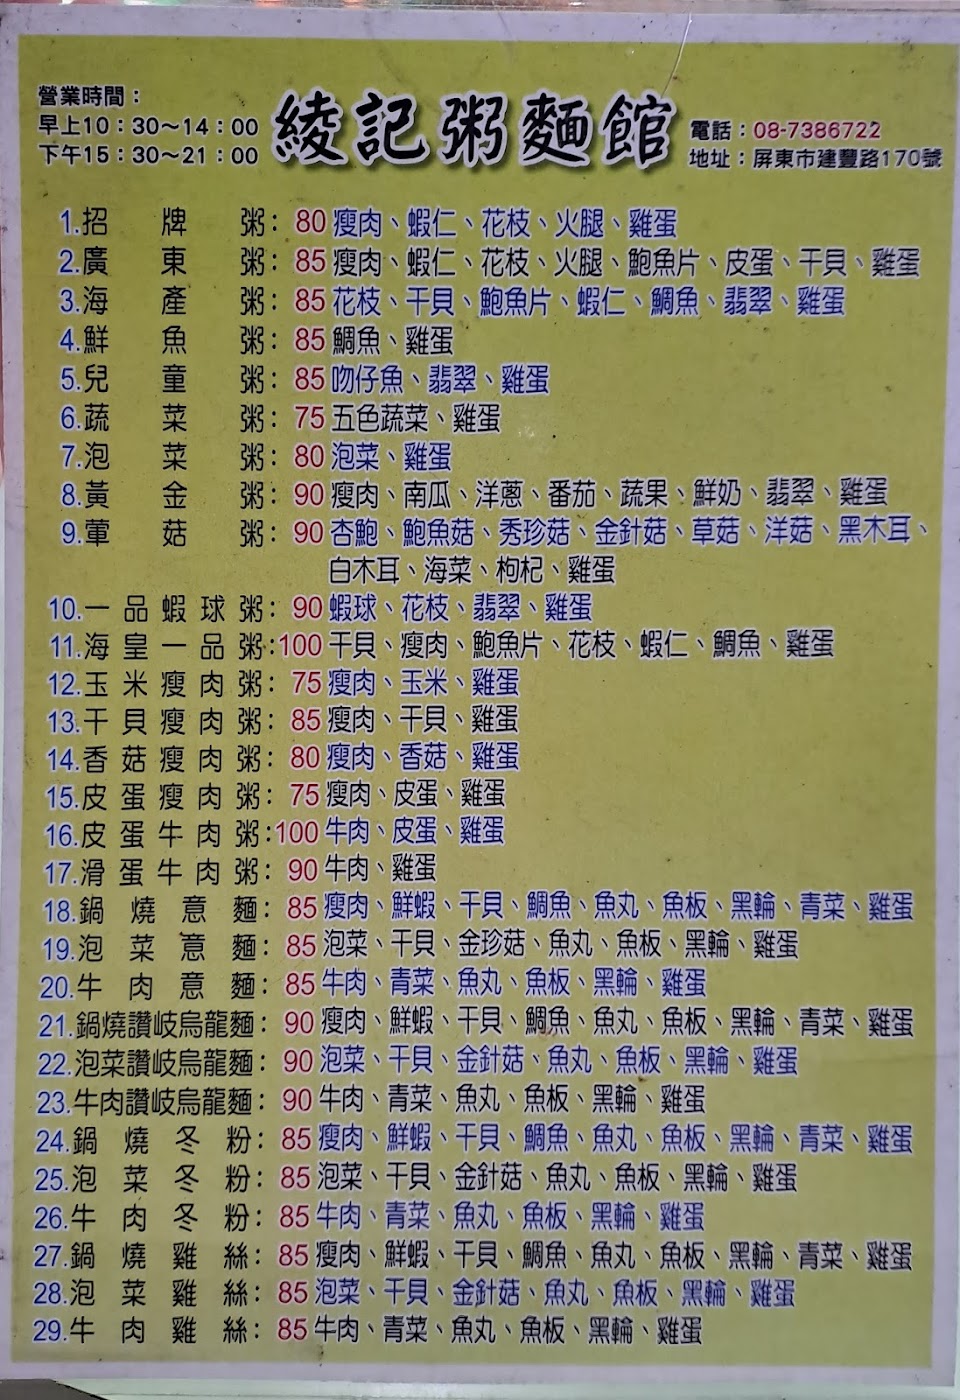 營業時間：
早上10：30～14：00
下午15：30～21：00
綾記粥麵館
電話：08-7386722
地址：屏東市建豐路170號
1.招牌粥：80 瘦肉、蝦仁、花枝、火腿、雞蛋
2.廣東粥：85 瘦肉、蝦仁、花枝、火腿、鮑魚片、皮蛋、干貝、雞蛋
3.海產粥：85 花枝、干貝、鮑魚片、蝦仁、鯛魚、翡翠、雞蛋
4.鮮魚粥：85 鯛魚、雞蛋
5.兒童粥：85 吻仔魚、翡翠、雞蛋
6.蔬菜粥：75 五色蔬菜、雞蛋
7.泡菜粥：80 泡菜、雞蛋
8.黃金粥：90 瘦肉、南瓜、洋蔥、番茄、蔬果、鮮奶、翡翠、雞蛋
9.蕈菇粥：90 杏鮑、鮑魚菇、秀珍菇、金針菇、草菇、洋菇、黑木耳、
白木耳、海菜、枸杞、雞蛋
10.一品蝦球粥：90 蝦球、花枝、翡翠、雞蛋
11.海皇一品粥：100 干貝、瘦肉、鮑魚片、花枝、蝦仁、鯛魚、雞蛋
12.玉米瘦肉粥：75 瘦肉、玉米、雞蛋
13.干貝瘦肉粥：85 瘦肉、干貝、雞蛋
14.香菇瘦肉粥：80 瘦肉、香菇、雞蛋
15.皮蛋瘦肉粥：75 瘦肉、皮蛋、雞蛋
16.皮蛋牛肉粥：100 牛肉、皮蛋、雞蛋
17.滑蛋牛肉粥：90 牛肉、雞蛋
18.鍋燒意麵：85 瘦肉、鮮蝦、干貝、鯛魚、魚丸、魚板、黑輪、青菜、雞蛋
19.泡菜意麵：85 泡菜、干貝、金珍菇、魚丸、魚板、黑輪、雞蛋
20.牛肉意麵：85 牛肉、青菜、魚丸、魚板、黑輪、雞蛋
21.鍋燒讚岐烏龍麵：90 瘦肉、鮮蝦、干貝、鯛魚、魚丸、魚板、黑輪、青菜、雞蛋
22.泡菜讚岐烏龍麵：90 泡菜、干貝、金針菇、魚丸、魚板、黑輪、雞蛋
23.牛肉讚岐烏龍麵：90 牛肉、青菜、魚丸、魚板、黑輪、雞蛋
24.鍋燒冬粉：85 瘦肉、鮮蝦、干貝、鯛魚、魚丸、魚板、黑輪、青菜、雞蛋
25.泡菜冬粉：85 泡菜、干貝、金針菇、魚丸、魚板、黑輪、雞蛋
26.牛肉冬粉：85 牛肉、青菜、魚丸、魚板、黑輪、雞蛋
27.鍋燒雞絲：85 瘦肉、鮮蝦、干貝、鯛魚、魚丸、魚板、黑輪、青菜、雞蛋
28.泡菜雞絲：85 泡菜、干貝、金針菇、魚丸、魚板、黑輪、雞蛋
29.牛肉雞絲：85 牛肉、青菜、魚丸、魚板、黑輪、雞蛋